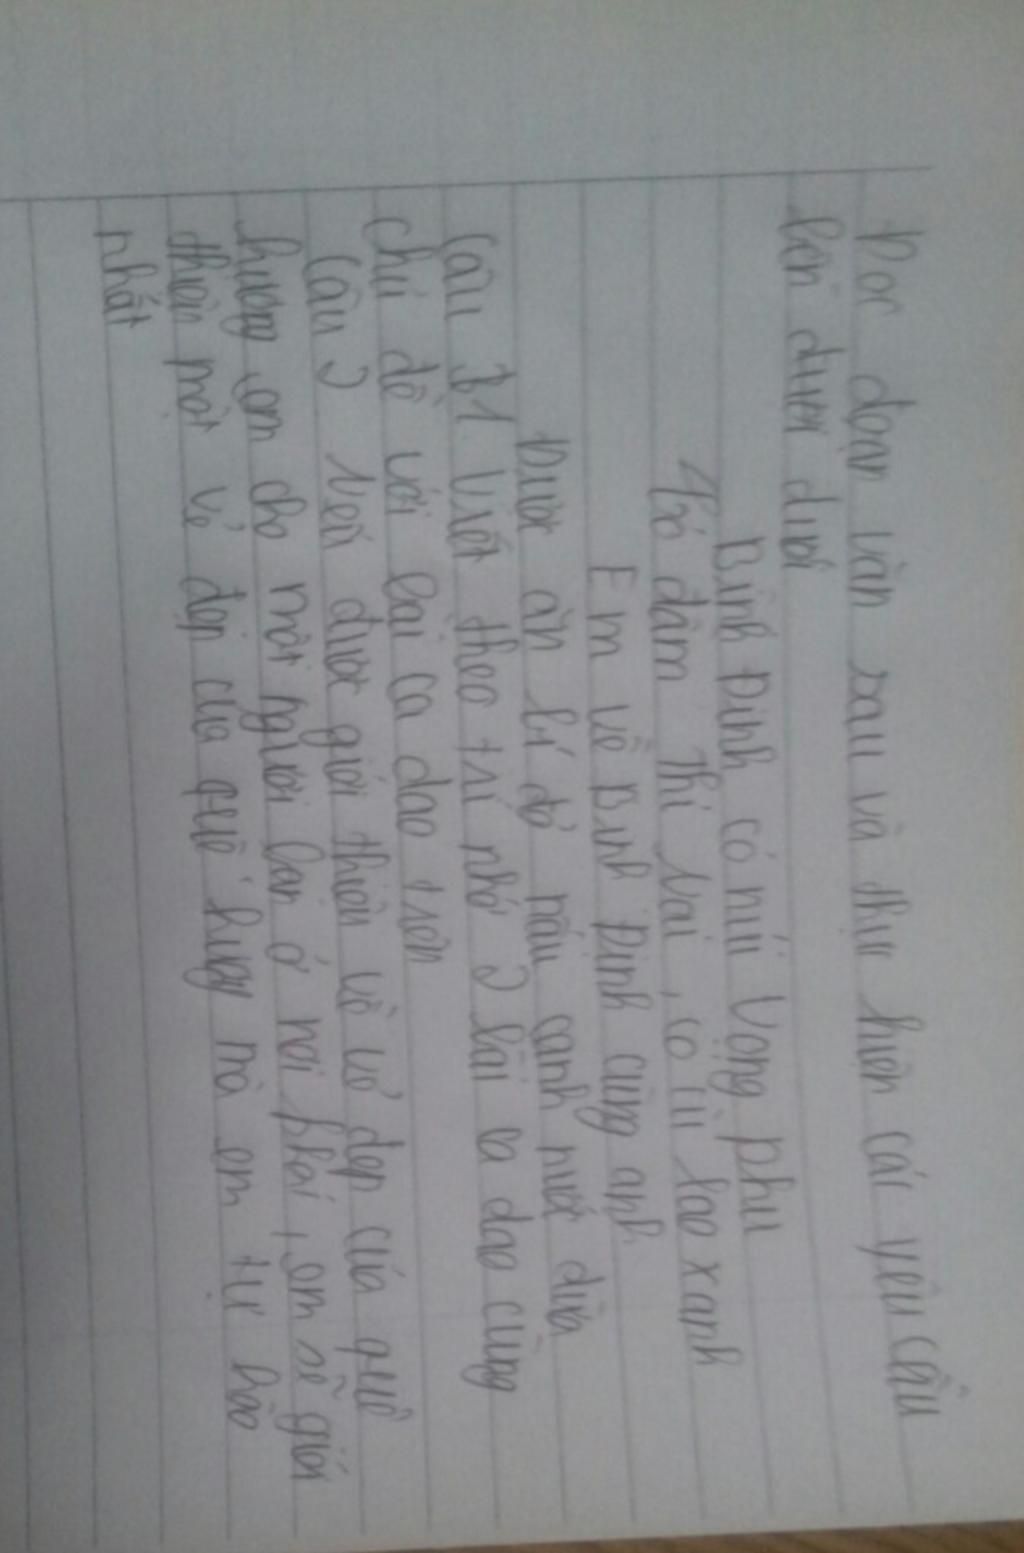 Đọc đoạn văn sau và thực hiện các yêu cầu
bên dưới dưới
Bình Định có núi Vọng Phu
Có đầm Thị Nại, có cù lao xanh
Em về Bình Định cùng anh
Được ăn bí đỏ nấu canh nước dừa
Câu 1. Viết theo trí nhớ 2 bài ca dao cùng
chủ đề với bài ca dao trên
Câu 2 Nếu được giới thiệu về vẻ đẹp của quê
hương em cho một người bạn ở nơi khác, em sẽ giới
thiệu một vẻ đẹp của quê hương mà em tự hào
nhất